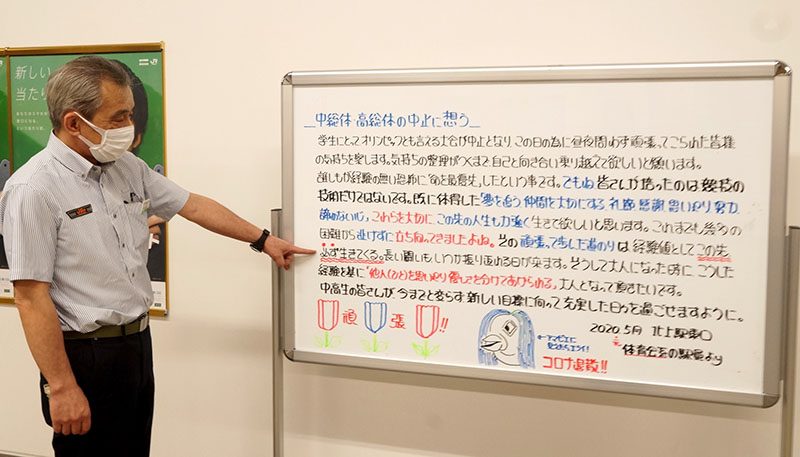 新しい
当たり
JR
中総体 高総体の中止に想う
学生にとってオリンピックとも言える大会が中止となり、この日の為に昼夜問わず頑張ってこられた皆様
の気持ちを察します。気持ちの整理がつくまで自己と向き合い乗り越えて欲しいと願います。
誰しもが経験の無い恐怖に「命を最優先」したという事です。でもね皆さんが培ったのは競技の
技術だけではないです。既に体得した「夢を追う 仲間を大切にする 礼節 感謝 思いやり 努力
諦めない心」これらを大切に、この先の人生も力強く生きて欲しいと思います。これまでも幾多の
困難から逃げずに立ち向ってきましたよね。その頑張って歩んだ道のりは経験値としてこの先、
必ず生きてくる。長い闘いもいつか振り返れる日が来ます。そうして大人になった時に、こうした
経験を基に「他人(ひと)を思いやり優しさを分けてあげられる」大人となって頂きたいです。
中高生の皆さんが、今までと変らず新しい目標に向って充実した日々を過ごせますように。
頑張!!
2020 5月 北上駅東口
体育会系の駅員より
コロナ退散!!